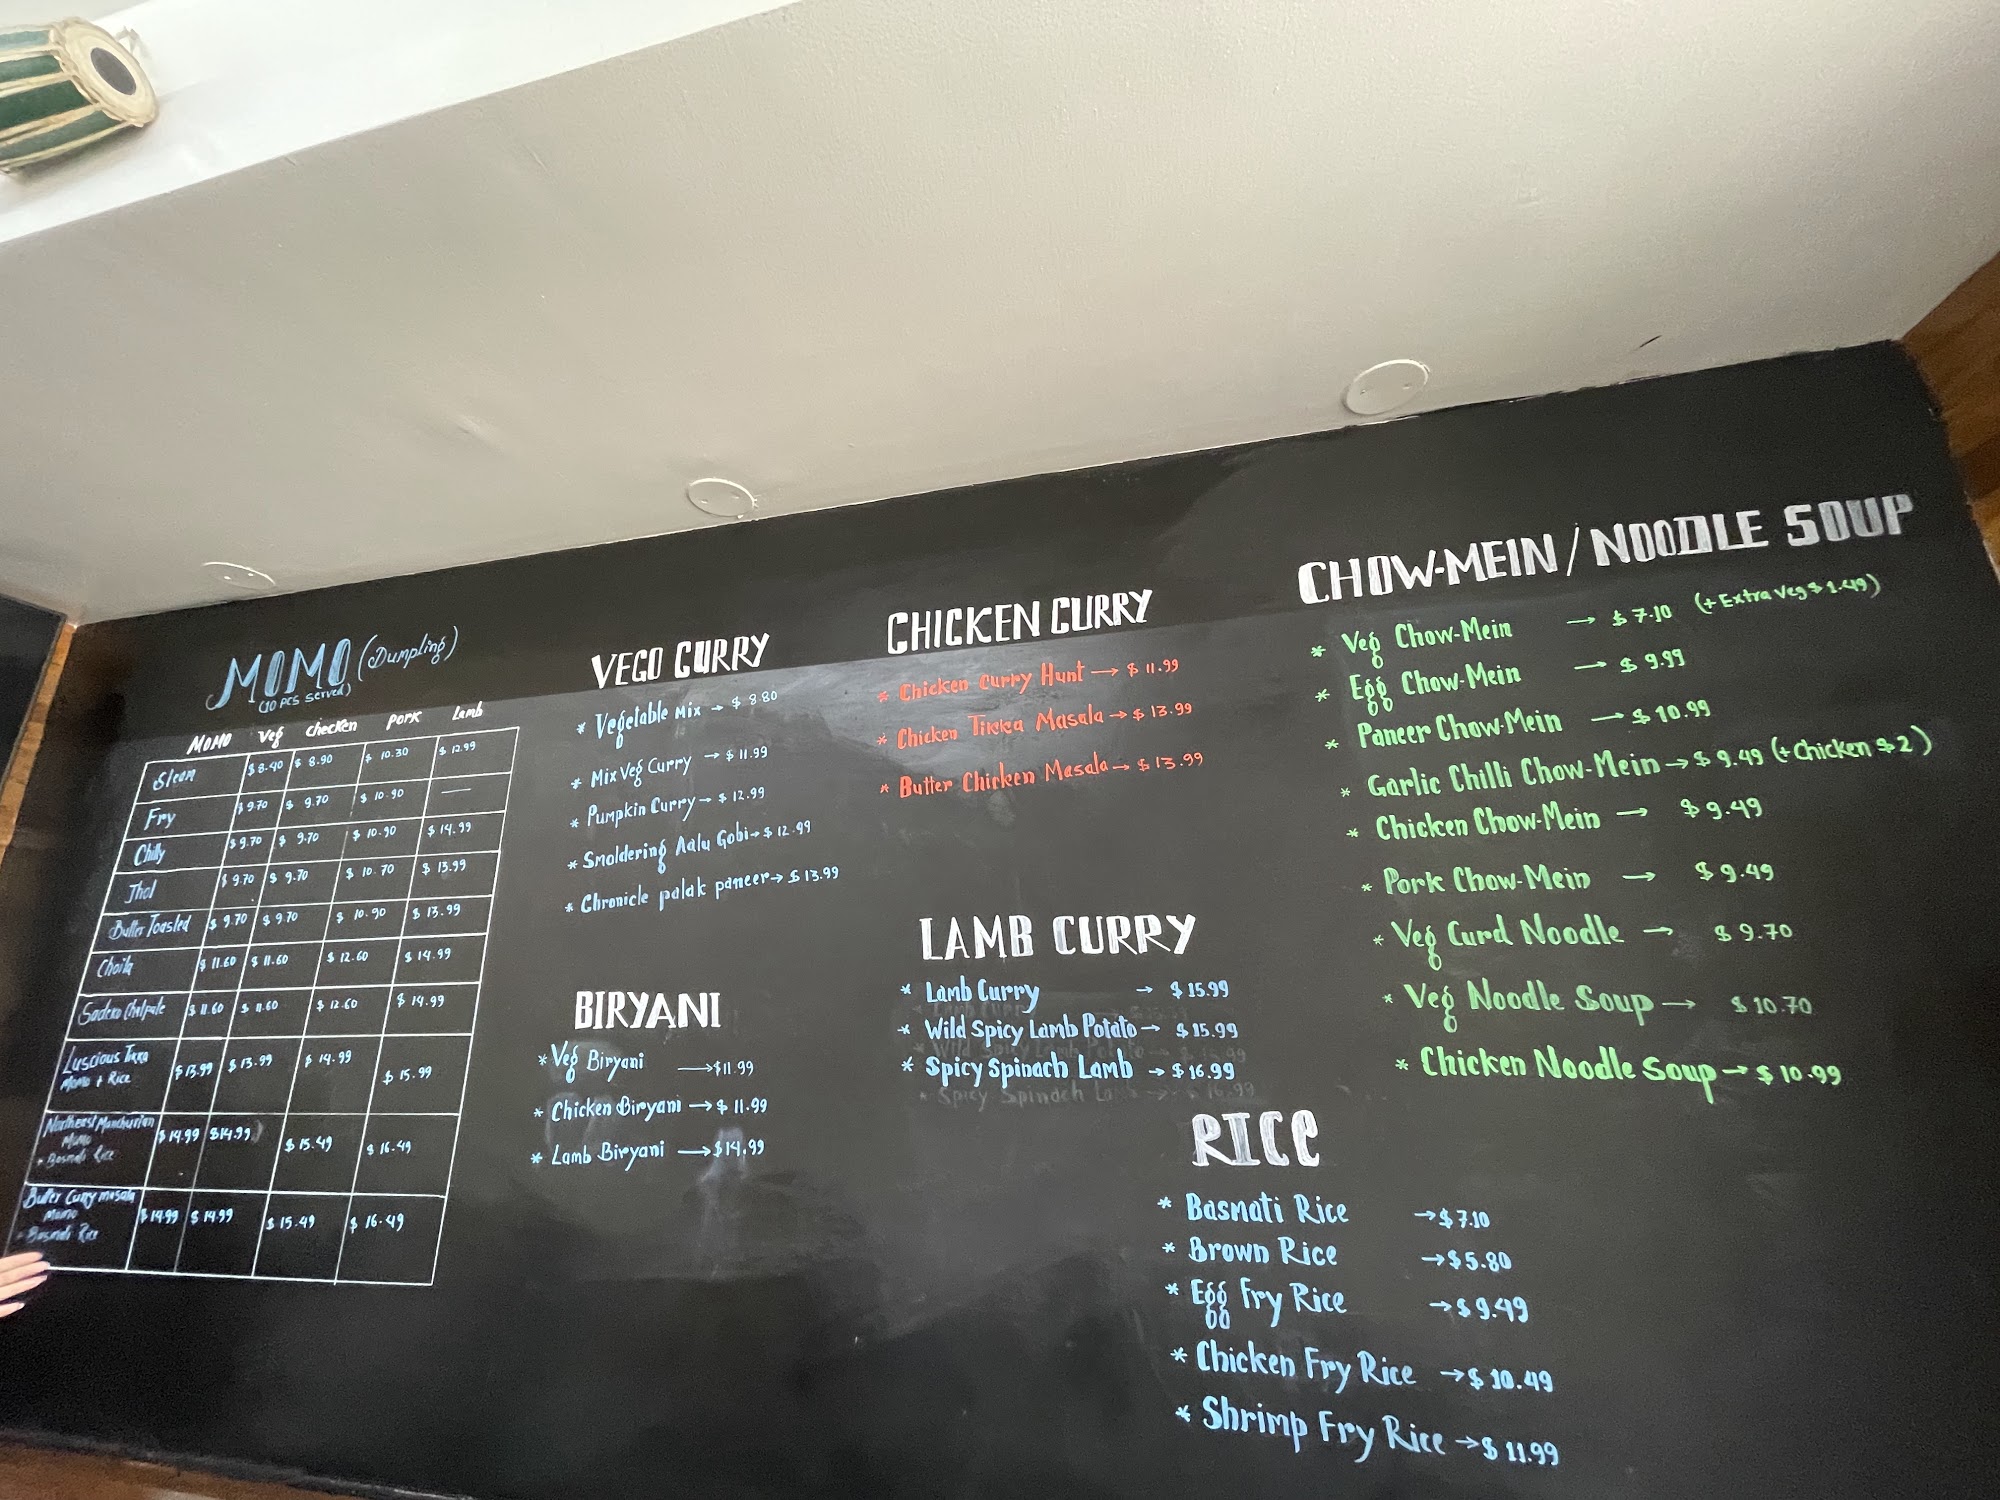 MOMO (Dumpling)
(10 PCS Served)
MOMO Veg checken Pork Lamb
Steam $8.40 $ 8.90 $ 10.30 $ 12.99
Fry $9.70 $ 9.70 $ 10.90 —
Chilly $9.70 $ 9.70 $ 10.90 $ 14.99
Jhol $9.70 $ 9.70 $ 10.70 $ 13.99
Butter Toasted $ 9.70 $ 9.70 $ 10.90 $ 13.99
Choila $ 11.60 $ 11.60 $ 12.60 $ 14.99
Sadeko Chatpate $ 11.60 $ 11.60 $ 12.60 $ 14.99
Luscious Tikka $13.99 $ 13.99 $ 14.99 $ 15.99
Momo + Rice
Northeast Manchurian $14.99 $14.99 $ 15.49 $ 16.49
Momo
+ Basmati Rice
Butter Curry masala $14.99 $ 14.99 $ 15.49 $ 16.49
Momo
+ Basmati Rice
VEGO CURRY
* Vegetable Mix → $ 8.80
* Mix Veg Curry → $ 11.99
* Pumpkin Curry → $ 12.99
* Smoldering Aalu Gobi → $ 12.99
* Chronicle palak paneer → $ 13.99
BIRYANI
* Veg Biryani → $11.99
* Chicken Biryani → $ 11.99
* Lamb Biryani → $14.99
CHICKEN CURRY
* Chicken Curry Hunt → $ 11.99
* Chicken Tikka Masala → $ 13.99
* Butter Chicken Masala → $ 13.99
LAMB CURRY
* Lamb Curry → $15.99
* Wild Spicy Lamb Potato → $ 15.99
* Spicy Spinach Lamb → $ 16.99
CHOW-MEIN / NOODLE SOUP
* Veg Chow-Mein → $ 7.10 (+ Extra Veg $ 1.49)
* Egg Chow-Mein → $ 9.99
* Paneer Chow-Mein → $ 10.99
* Garlic Chilli Chow-Mein → $ 9.49 (+ Chicken $ 2)
* Chicken Chow-Mein → $ 9.49
* Pork Chow-Mein → $ 9.49
* Veg Curd Noodle → $ 9.70
* Veg Noodle Soup → $ 10.70
* Chicken Noodle Soup → $ 10.99
RICE
* Basmati Rice → $ 7.10
* Brown Rice → $5.80
* Egg Fry Rice → $ 9.49
* Chicken Fry Rice → $ 10.49
* Shrimp Fry Rice → $ 11.99